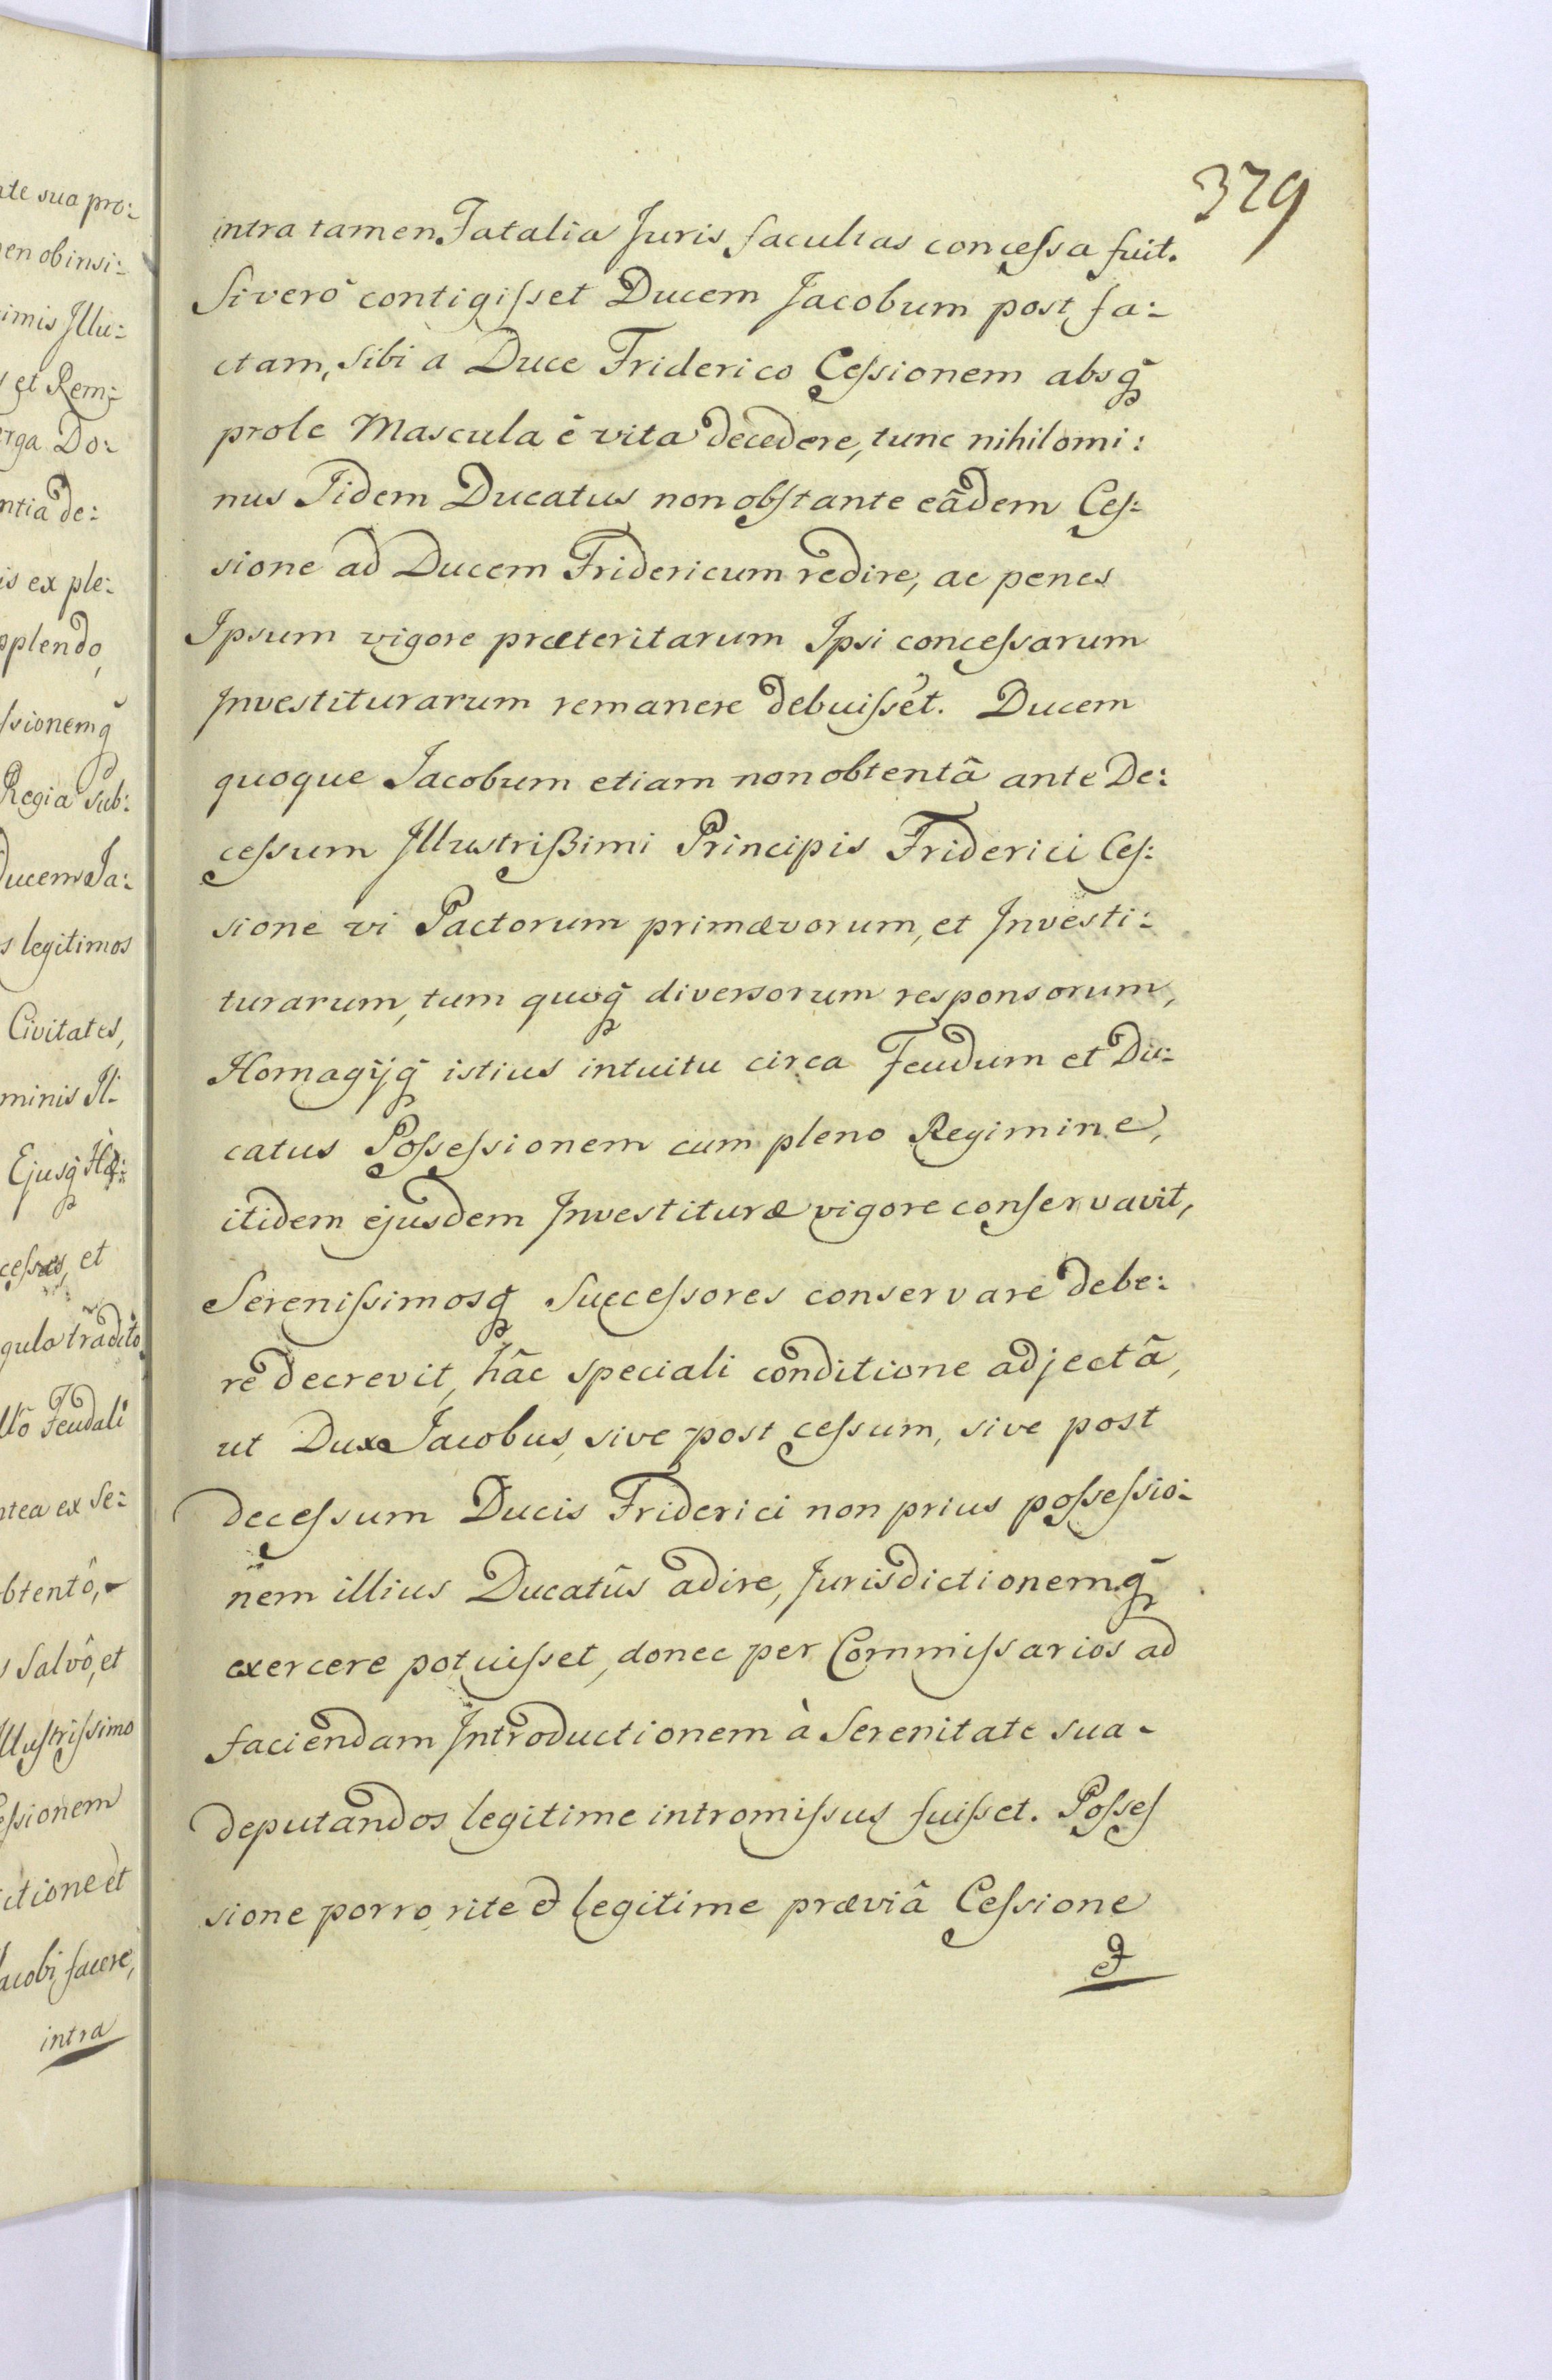 379
intra tamen Fatalia Juris facultas concessa fuit.
Si verò contigisset Ducem Jacobum post fa:
ctam, sibi a Duce Friderico Cessionem absq̃
prole Mascula è vita decedere, tunc nihilomi:
nus Iidem Ducatus non obstante eâdem Ces:
sione ad Ducem Fridericum redire, ac penes
Ipsum vigore præteritarum Ipsi concessarum
Investiturarum remanere debuisset. Ducem
quoque Jacobum etiam non obtentâ ante De:
cessum Illustrißimi Principis Friderici Ces:
sione vi Pactorum primævorum, et Investi:
turarum, tum quoq̃ diversorum responsorum,
Homagijq̃ istius intuitu circa Feudum et Du:
catus Possessionem cum pleno Regimine,
itidem ejusdem Investituræ vigore conservavit,
Serenissimosq̃ Successores conservare debe:
re decrevit, hâc speciali conditione adjectâ,
ut Dux Jacobus, sive post cessum, sive post
decessum Ducis Friderici non prius possessio:
nem illius Ducatûs adire, Jurisdictionemq̃
exercere potuisset, donec per Commissarios ad
faciendam Introductionem à Serenitate sua
deputandos legitime intromissus fuisset. Posses
sione porro rite & legitime præviâ Cessione
&
te sua pro:
en ob insi:
imis Illu:
et Rem:
rga Do:
ntia de:
is ex ple:
plendo,
ssionemq̃
Regia Sub:
Ducem Ja:
s legitimos
Civitates,
minis Il:
Ejusq̃ Hæ:
et
gula tradito
Feudali
ntea ex Se:
btentô,
s Salvô, et
llustrissimo
essionem
ctione et
acobi facere,
intra